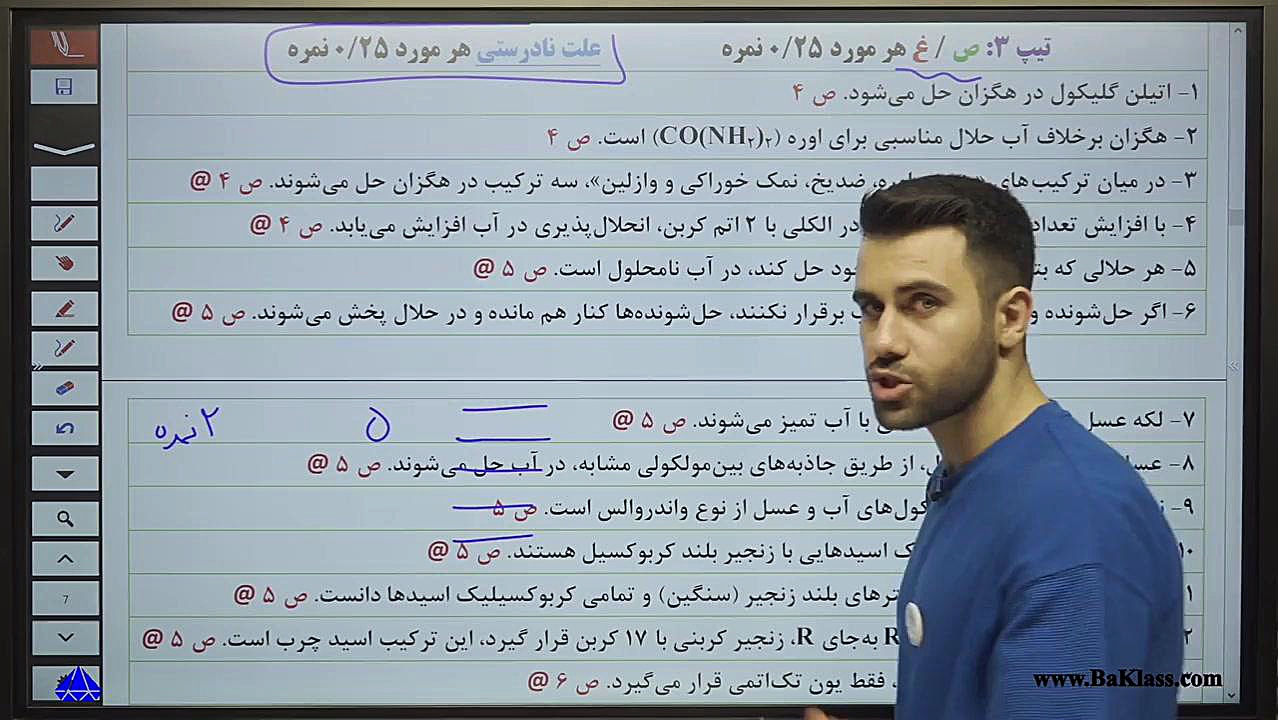 تیپ ۳: ص / غ هر مورد ۰/۲۵ نمره
علت نادرستی هر مورد ۰/۲۵ نمره
۱- اتیلن گلیکول در هگزان حل می‌شود. ص ۴
۲- هگزان برخلاف آب حلال مناسبی برای اوره (CO(NH۲)۲) است. ص ۴
۳- در میان ترکیب‌های اوره، ضدیخ، نمک خوراکی و وازلین»، سه ترکیب در هگزان حل می‌شوند. ص ۴ @
۴- با افزایش تعداد در الکلی با ۲ اتم کربن، انحلال‌پذیری در آب افزایش می‌یابد. ص ۴ @
۵- هر حلالی که حل کند، در آب نامحلول است. ص ۵ @
۶- اگر حل‌شونده و برقرار نکنند، حل‌شونده‌ها کنار هم مانده و در حلال پخش می‌شوند. ص ۵ @
۷- لکه عسل با آب تمیز می‌شوند. ص ۵ @
۵
۲ نمره
۸- از طریق جاذبه‌های بین‌مولکولی مشابه، در آب حل می‌شوند. ص ۵ @
۹- آب و عسل از نوع واندروالس است. ص ۵
۱۰- اسیدهایی با زنجیر بلند کربوکسیل هستند. ص ۵ @
بلند زنجیر (سنگین) و تمامی کربوکسیلیک اسیدها دانست. ص ۵ @
به‌جای R، زنجیر کربنی با ۱۷ کربن قرار گیرد، این ترکیب اسید چرب است. ص ۵ @
فقط یون تک‌اتمی قرار می‌گیرد. ص ۶ @
7
www.BaKlass.com